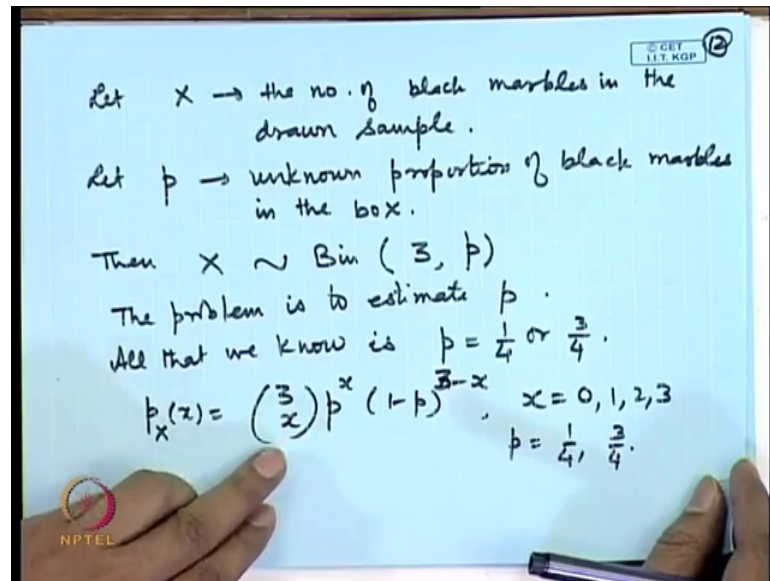 © CET
I.I.T. KGP
12
Let X → the no. of black marbles in the
drawn sample.
Let p → unknown proportion of black marbles
in the box.
Then X ~ Bin ( 3, p)
The problem is to estimate p .
All that we know is p = 1/4 or 3/4 .
p_X(x) = (3 x) p^x (1-p)^{3-x}, x = 0, 1, 2, 3
p = 1/4, 3/4.
NPTEL